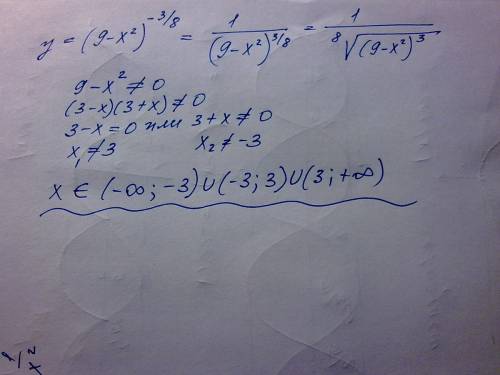 y = (9-x²)^{-3/8} = 1/(9-x²)^{3/8} = 1/⁸√(9-x²)³
9-x² ≠ 0
(3-x)(3+x) ≠ 0
3-x = 0 или 3+x ≠ 0
x₁ ≠ 3 x₂ ≠ -3
x ∈ (-∞; -3) ∪ (-3; 3) ∪ (3; +∞)
1/x²